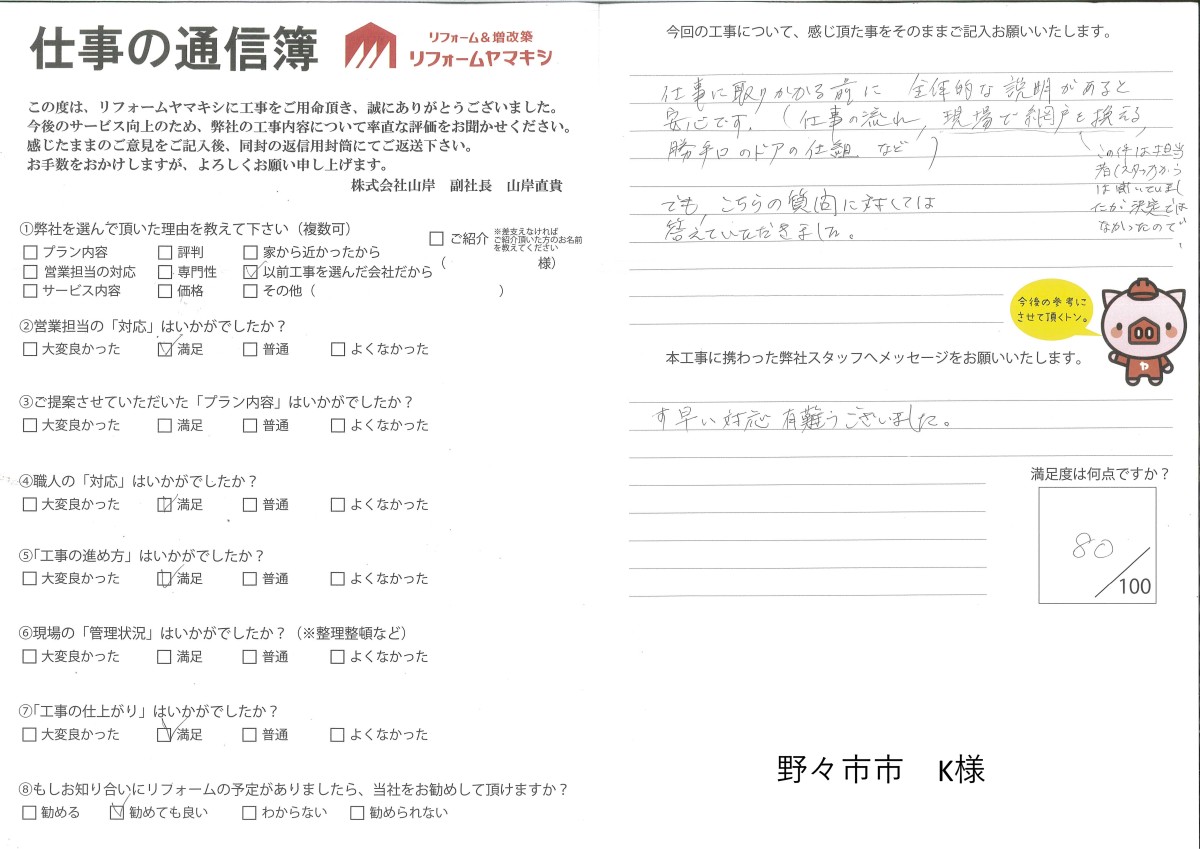 仕事の通信簿
リフォーム&増改築
リフォームヤマキシ
この度は、リフォームヤマキシに工事をご用命頂き、誠にありがとうございました。
今後のサービス向上のため、弊社の工事内容について率直な評価をお聞かせください。
感じたままのご意見をご記入後、同封の返信用封筒にてご返送下さい。
お手数をおかけしますが、よろしくお願い申し上げます。
株式会社山岸 副社長 山岸直貴
①弊社を選んで頂いた理由を教えて下さい（複数可）
□ プラン内容 □ 評判 □ 家から近かったから
□ 営業担当の対応 □ 専門性 ☑ 以前工事を選んだ会社だから
□ サービス内容 □ 価格 □ その他（ ）
□ ご紹介 ※差支えなければ
ご紹介頂いた方のお名前
を教えてください
（ 様）
②営業担当の「対応」はいかがでしたか？
□ 大変良かった ☑ 満足 □ 普通 □ よくなかった
③ご提案させていただいた「プラン内容」はいかがでしたか？
□ 大変良かった □ 満足 □ 普通 □ よくなかった
④職人の「対応」はいかがでしたか？
□ 大変良かった ☑ 満足 □ 普通 □ よくなかった
⑤「工事の進め方」はいかがでしたか？
□ 大変良かった ☑ 満足 □ 普通 □ よくなかった
⑥現場の「管理状況」はいかがでしたか？（※整理整頓など）
□ 大変良かった □ 満足 □ 普通 □ よくなかった
⑦「工事の仕上がり」はいかがでしたか？
□ 大変良かった ☑ 満足 □ 普通 □ よくなかった
⑧もしお知り合いにリフォームの予定がありましたら、当社をお勧めして頂けますか？
□ 勧める ☑ 勧めても良い □ わからない □ 勧められない
今回の工事について、感じ頂た事をそのままご記入お願いいたします。
仕事に取りかかる前に 全体的な説明があると
安心です。（仕事の流れ，現場で網戸を換える，
勝手口のドアの仕組 など）
この件は担当
者(スタッフ)から
は聞いていまし
たが 決定では
なかったので。
でも，こちらの質問に対しては
答えていただきました。
今後の参考に
させて頂くトン。
ヤ
本工事に携わった弊社スタッフへメッセージをお願いいたします。
す早い対応 有難うございました。
満足度は何点ですか？
80
／100
野々市市 K様